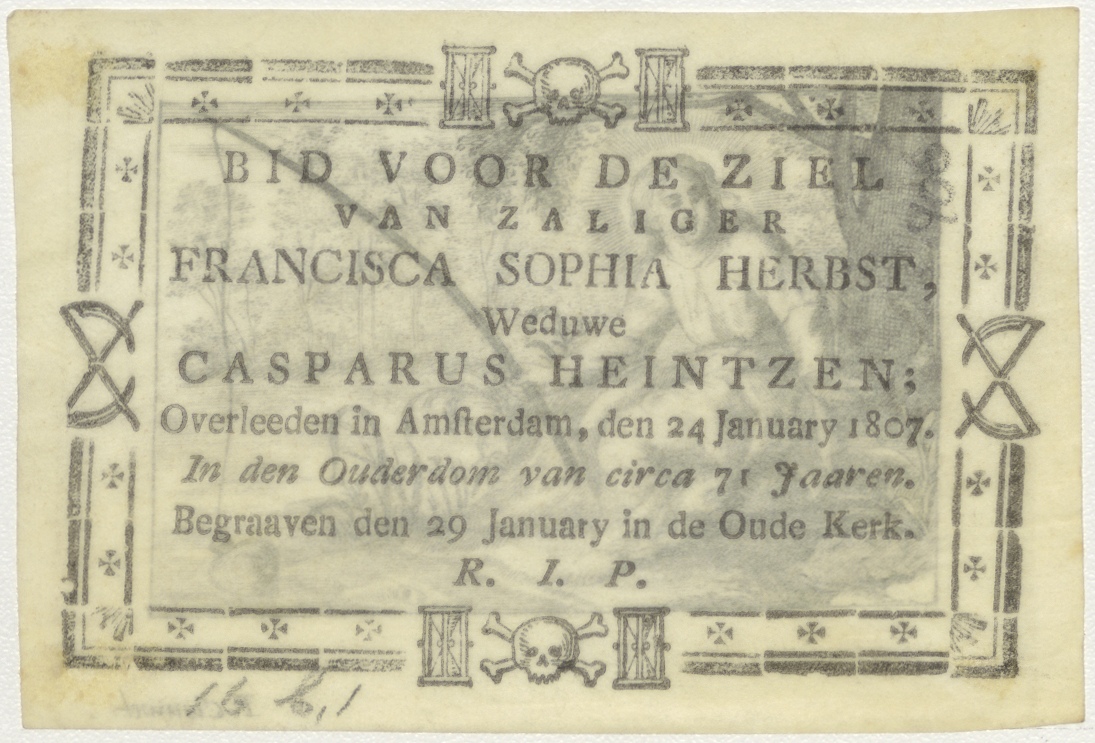 BID VOOR DE ZIEL
VAN ZALIGER
FRANCISCA SOPHIA HERBST,
Weduwe
CASPARUS HEINTZEN;
Overleeden in Amſterdam, den 24 January 1807.
In den Ouderdom van circa 71 Jaaren.
Begraaven den 29 January in de Oude Kerk.
R. I. P.